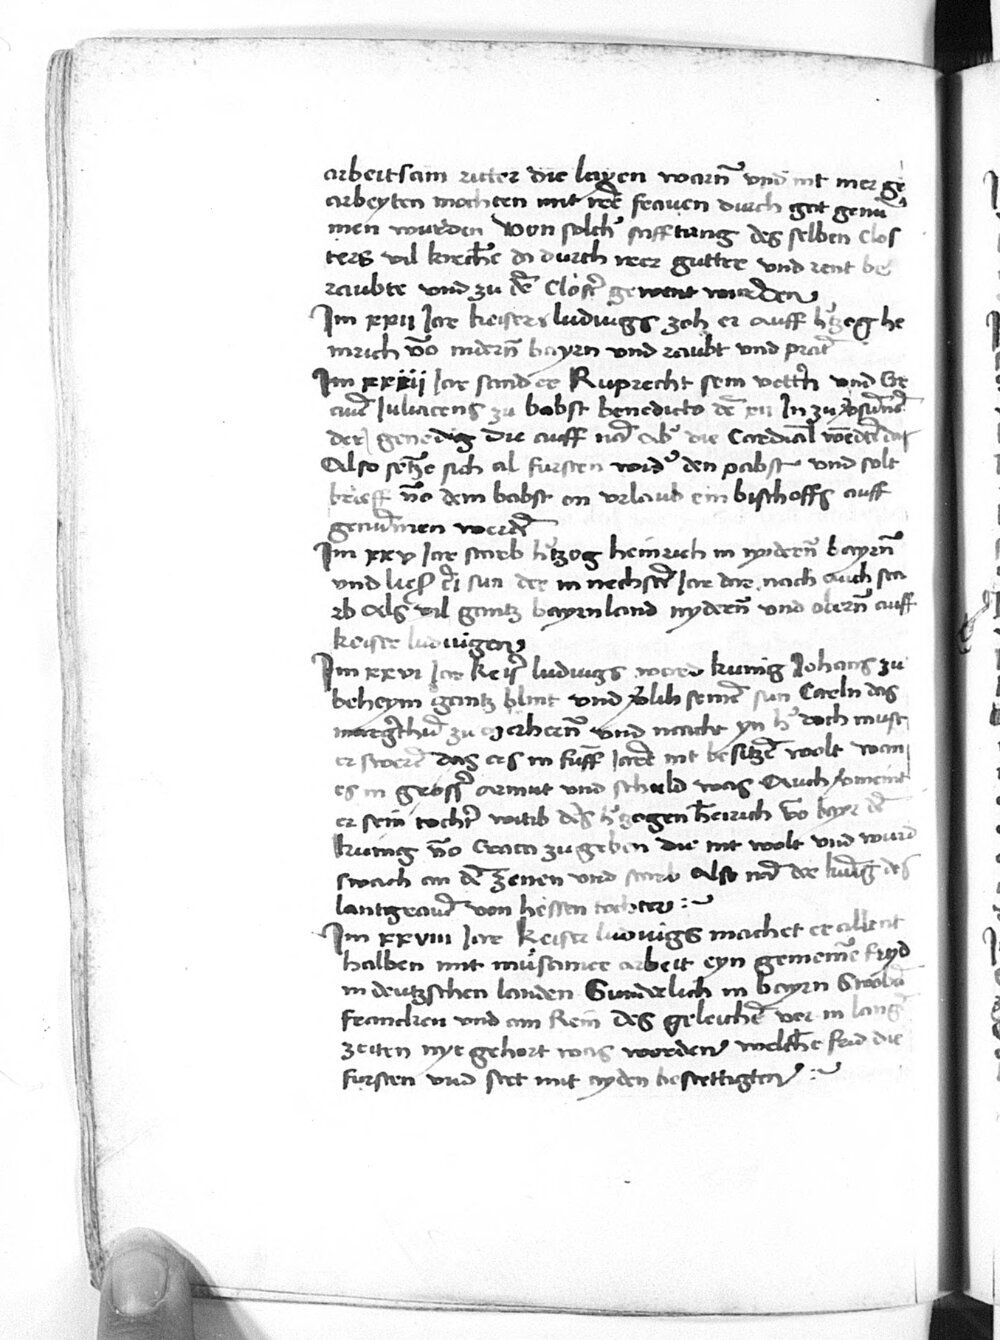 arbeitsam ritter die layen warn̄ vnd nit mer ge
arbeyten mochten mit irē frauen durch got genū
men wurden Von solch̓ stifftung des selben Clos
ters vil kirch̄e do durch irer gutter vnd rent be
raubte vnd zu dē Clost̓ gewent wurden
Im xxii Jar keisers ludwigs zoh er auff h̓tzog he
inrich vō nidern̄ bayrn vnd raubt vnd prāt
Im xxiiii Jar sand er Ruprecht sein vett̓n vnd Gr
auē Juliacens zu babst benedicto dē xii In zu
der genedig Die auff nā Ab̓ die Cardinal
Also setz̄e sich al fursten wid̓ den pabst vnd solt
brieff vō dem babst on vrlaub ein bischoffs auff
genūmen werdē
Im xxv Jar starb h̓tzog heinrich in nydern̄ bayrn̄
vnd lies ein sun der in nechstē Jar dar nach auch sta
rb Als vil gantz bayrnland nydern̄ vnd obern̄ auff
keiser ludwigen
Im xxvi Jar keis̓ ludwigs ward kunig Johans zu
beheym gantz blint vnd v̓lih seinē sun Careln das
margthū zu merhern̄ vnd macht yn h̓ doch must
er swerē das ers in funff Jarē nit besitzē wolt wan
es in gross̓ armut vnd schuld was Auch v̓meint
er sein tocht̓ witib des h̓tzogen heinrich vō bayr dē
kunig vō Craca zu geben die nit wolt vnd wurd
swach an dē zenen vnd starb Also nā der kunig des
lantgrauē von hessen tochter :~
Im xxviii Jar keiser ludwigs machet er allent
halben mit mu̓samer arbeit eyn gemeinē fryd
in deutzschen landen Sunderlich in bayrn Swobē
francken vnd am Rein Des geleichē vor in langē
zeiten nye gehort was worden welch̄e frid die
fursten vnd stet mit ayden bestettigten :~